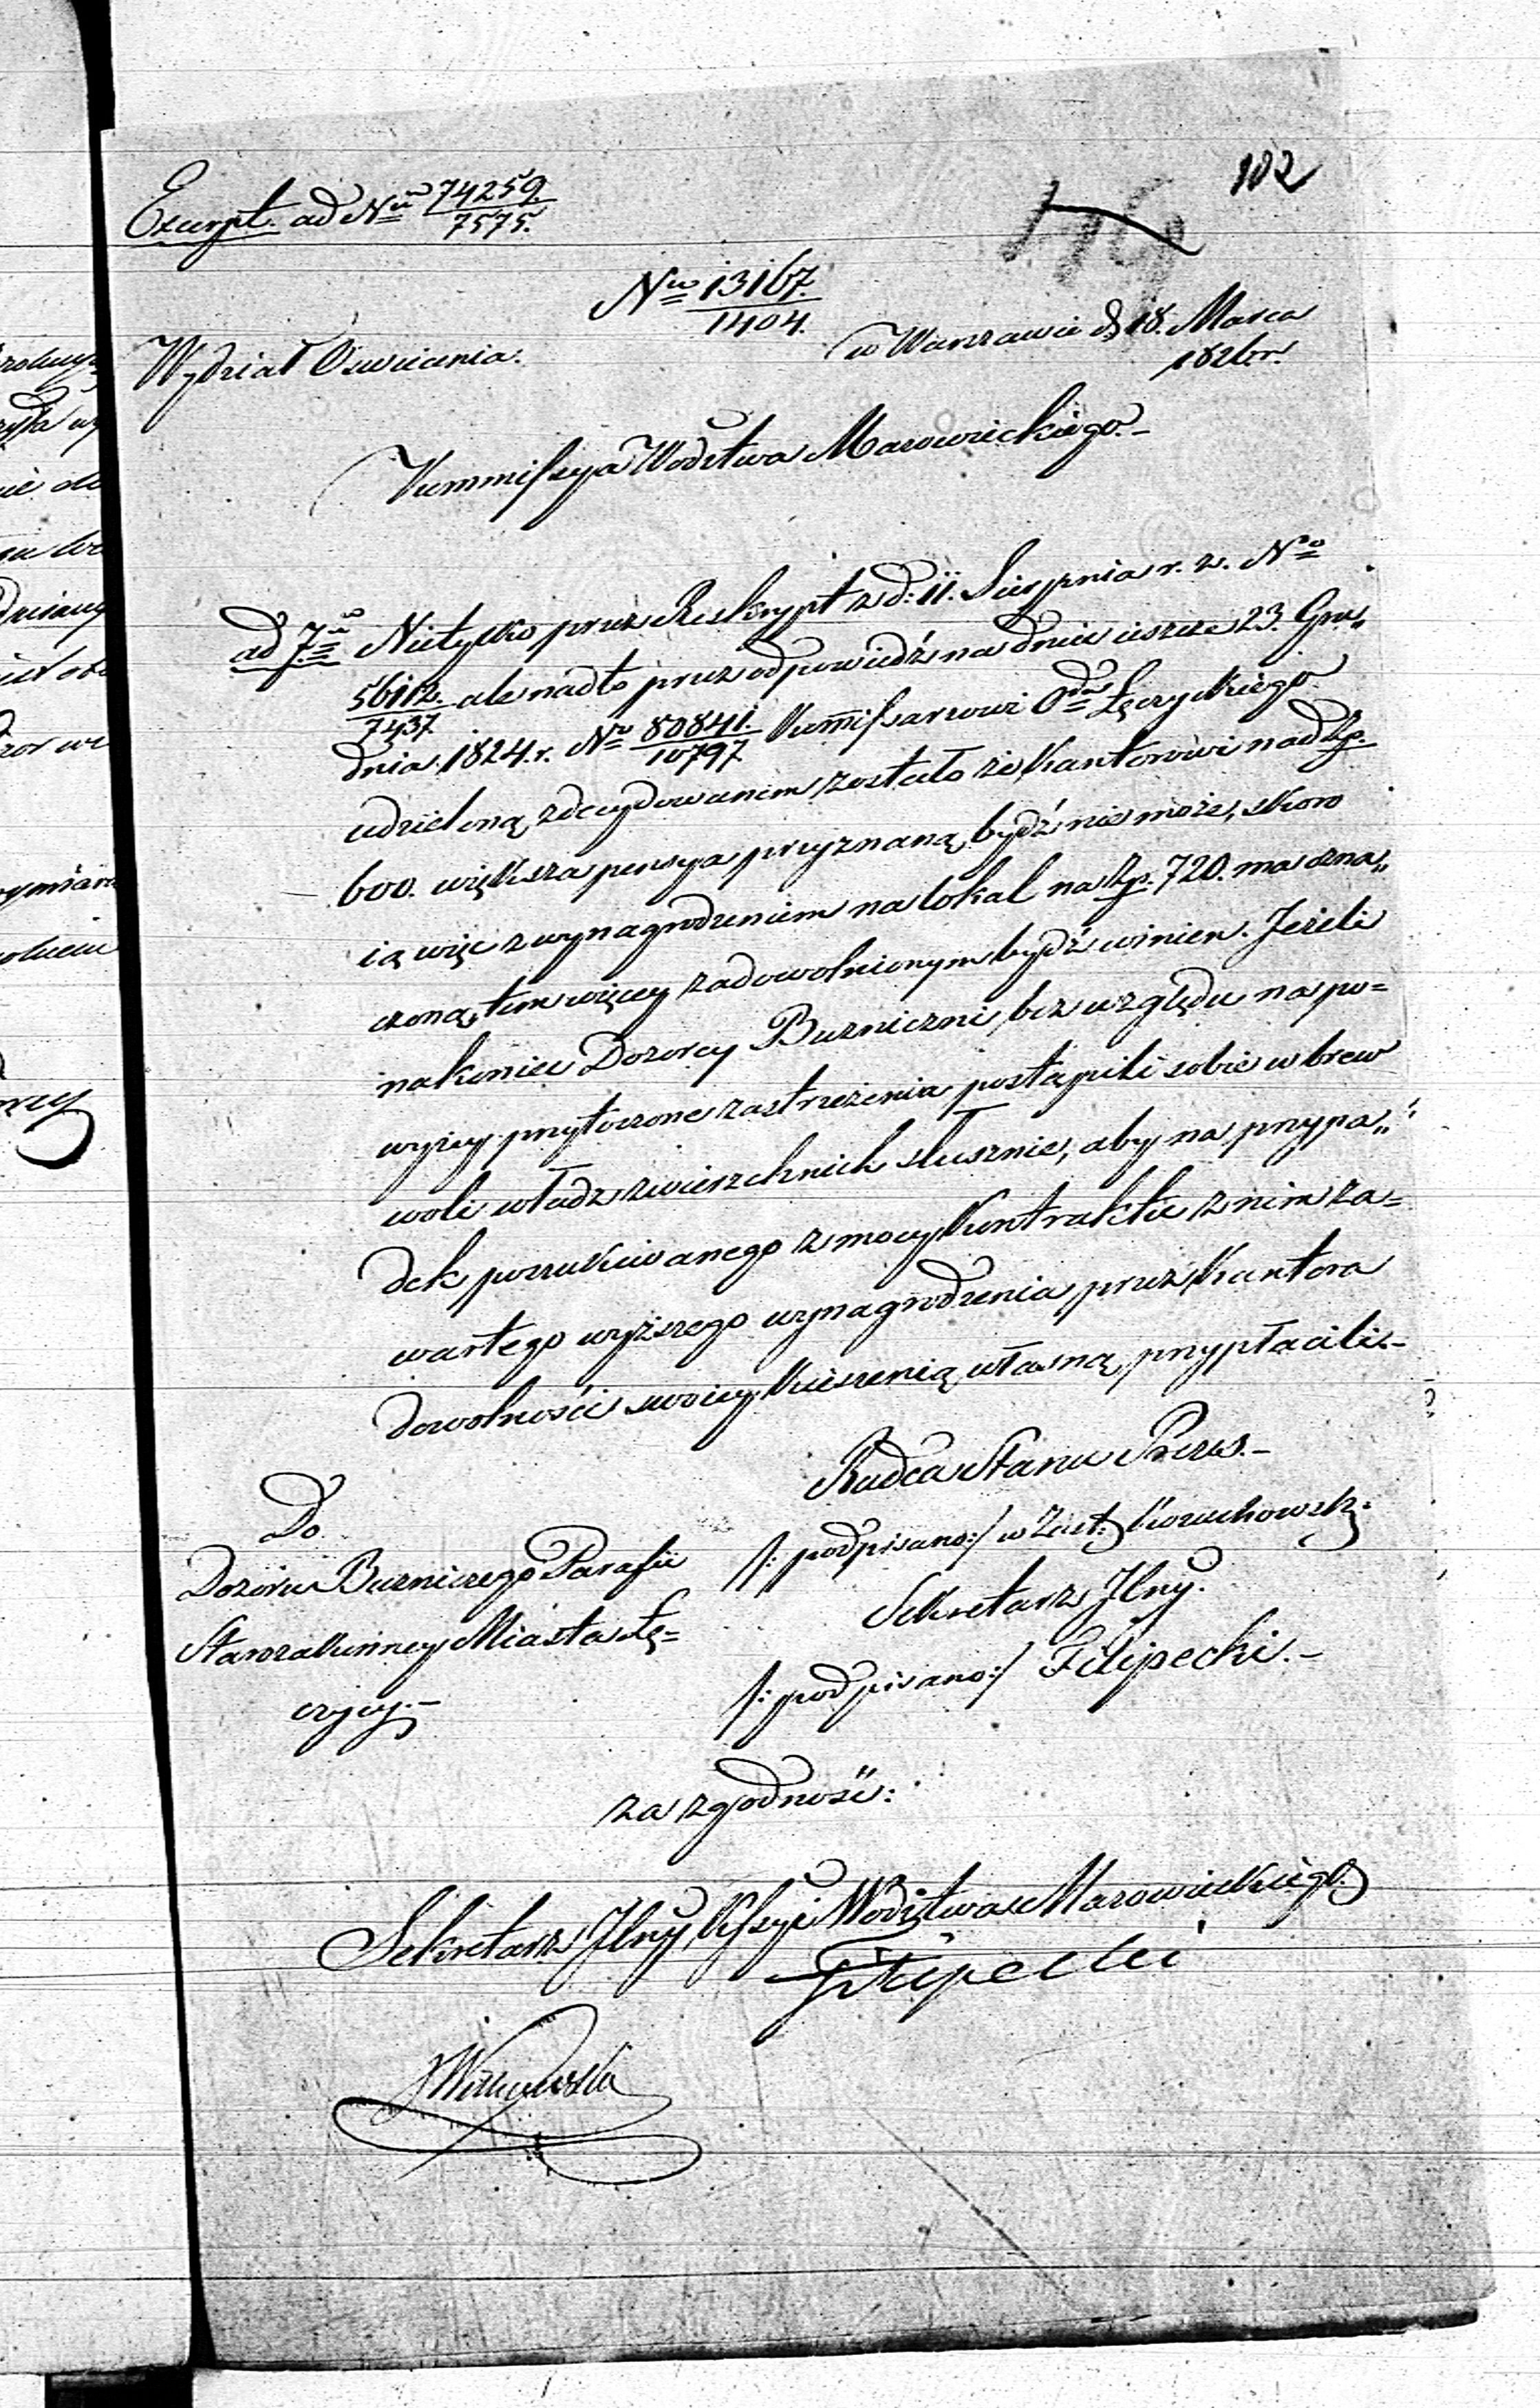 102
Excerpt. ad Nrū 74259./7575.
179
Nro 13167./1404.
w Warszawie d. 18. Marca
1826. r.
Wydział Oswiecenia.
Kommissya Wodztwa Mazowieckiego.-
ad 7um Nietylko przez Reskrypt z d: 11. Sierpnia r. z. No
56112./7437. ale nadto przez odpowiedź na dniu ieszcze 23. Gru„
dnia 1824. r. No 80841./10797. Kommissarzowi Odu Łęczyckiego
udzieloną, zdecydowanem zostało że Kantorowi nad Zp.
600. większa pensya przyznaną bydź nie może, skoro
ią więc z wynagrodzeniem na lokal na Zp. 720. ma ozna„
czoną, tem więcey zadowolnionym bydź winien. Jeżeli
nakoniec Dozorcy Bużniczni bez względu na po=
wyżey przytoczone zastrzeżenia postąpili sobie w brew
woli władz zwierzchnich słusznie, aby na przypa„
dek poszukiwanego z mocy Kontraktu z nim za=
wartego wyższego wynagrodzenia przez Kantora
dowolność swoiey kieszenią własną przypłacili.-
Radca Stanu Prezes.-
/: podpisano:/ w Zast:
Sekretarz Jlny.
/: podpisano:/ Filipecki.-
Do
Dozoru Bużniczego Parafii
Starozakonney Miasta Łę=
czycy.-
za zgodność:
Sekretarz Jlny Kssyi Wodztwa Mazowieckiego
Filipecki